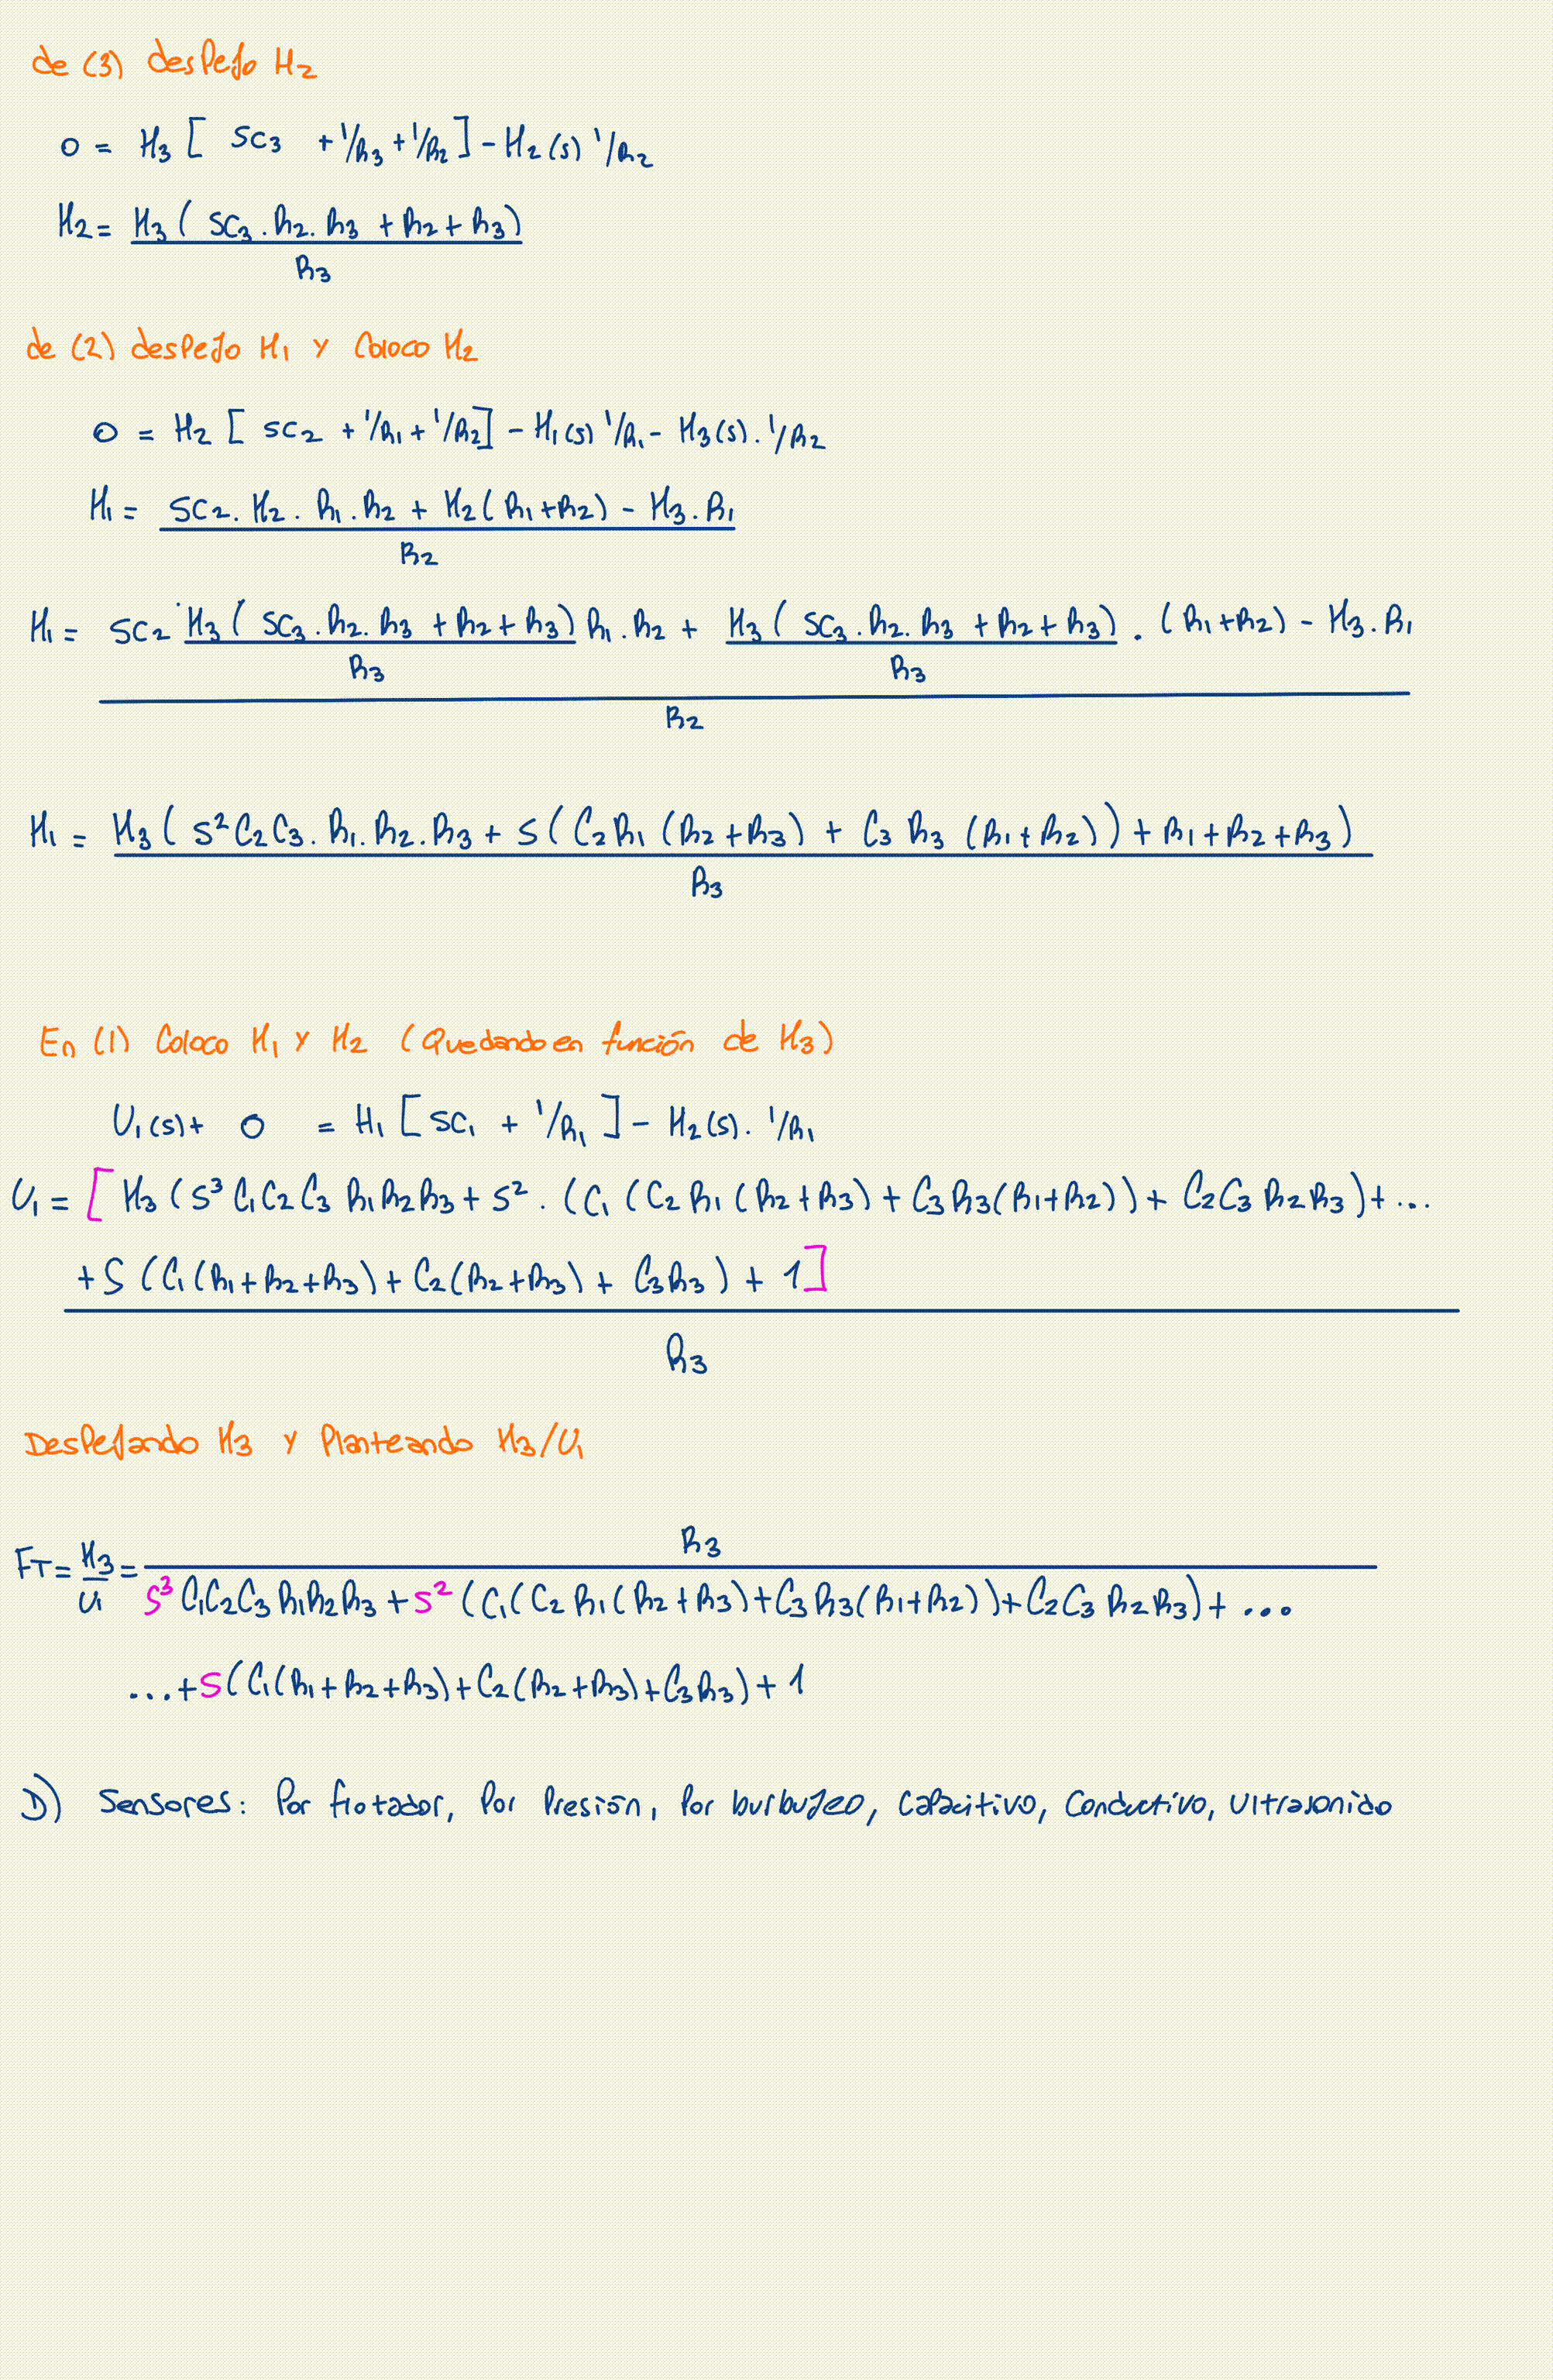 de (3) despejo H₂
0 = H₃ [ SC₃ + 1/R₃ + 1/R₂ ] - H₂(s) 1/R₂
H₂ = H₃ ( SC₃ . R₂ . R₃ + R₂ + R₃ )
R₃
de (2) despejo H₁ y Coloco H₂
0 = H₂ [ SC₂ + 1/R₁ + 1/R₂ ] - H₁(s) 1/R₁ - H₃(s) . 1/R₂
H₁ = SC₂ . H₂ . R₁ . R₂ + H₂ ( R₁ + R₂ ) - H₃ . R₁
R₂
H₁ = SC₂ . H₃ ( SC₃ . R₂ . R₃ + R₂ + R₃ ) R₁ . R₂ + H₃ ( SC₃ . R₂ . R₃ + R₂ + R₃ ) . ( R₁ + R₂ ) - H₃ . R₁
R₃ R₃
R₂
H₁ = H₃ ( S² C₂ C₃ . R₁ . R₂ . R₃ + S ( C₂ R₁ ( R₂ + R₃ ) + C₃ R₃ ( R₁ + R₂ ) ) + R₁ + R₂ + R₃ )
R₃
En (1) Coloco H₁ y H₂ ( Quedando en función de H₃ )
U₁(s) + 0 = H₁ [ SC₁ + 1/R₁ ] - H₂(s) . 1/R₁
U₁ = [ H₃ ( S³ C₁ C₂ C₃ R₁ R₂ R₃ + S² . ( C₁ ( C₂ R₁ ( R₂ + R₃ ) + C₃ R₃ ( R₁ + R₂ ) ) + C₂ C₃ R₂ R₃ ) + ...
+ S ( C₁ ( R₁ + R₂ + R₃ ) + C₂ ( R₂ + R₃ ) + C₃ R₃ ) + 1 ]
R₃
Despejando H₃ y Planteando H₃/U₁
R₃
FT = H₃/U₁ = S³ C₁ C₂ C₃ R₁ R₂ R₃ + S² ( C₁ ( C₂ R₁ ( R₂ + R₃ ) + C₃ R₃ ( R₁ + R₂ ) ) + C₂ C₃ R₂ R₃ ) + ...
... + S ( C₁ ( R₁ + R₂ + R₃ ) + C₂ ( R₂ + R₃ ) + C₃ R₃ ) + 1
D) Sensores: Por flotador, Por Presión, Por burbujeo, Capacitivo, Conductivo, Ultrasonido